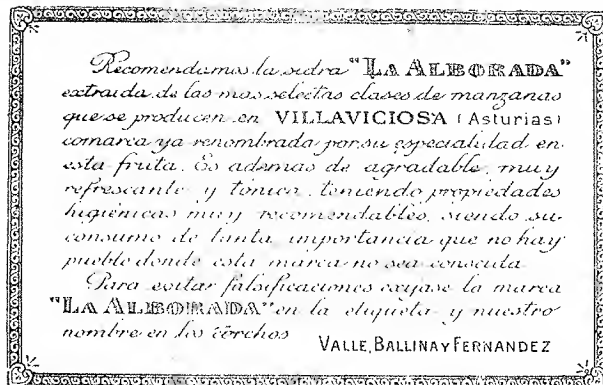 Recomendamos la sidra "LA ALBORADA"
extraida de las mas selectas clases de manzanas
que se producen en VILLAVICIOSA (Asturias)
comarca ya renombrada por su especialidad en
esta fruta. Es ademas de agradable, muy
refrescante y tónica, teniendo propiedades
higiénicas muy recomendables, siendo su
consumo de tanta importancia que no hay
pueblo donde esta marca no sea conocida.
Para evitar falsificaciones exijase la marca
"LA ALBORADA" en la etiqueta y nuestro
nombre en los corchos
VALLE, BALLINA Y FERNANDEZ